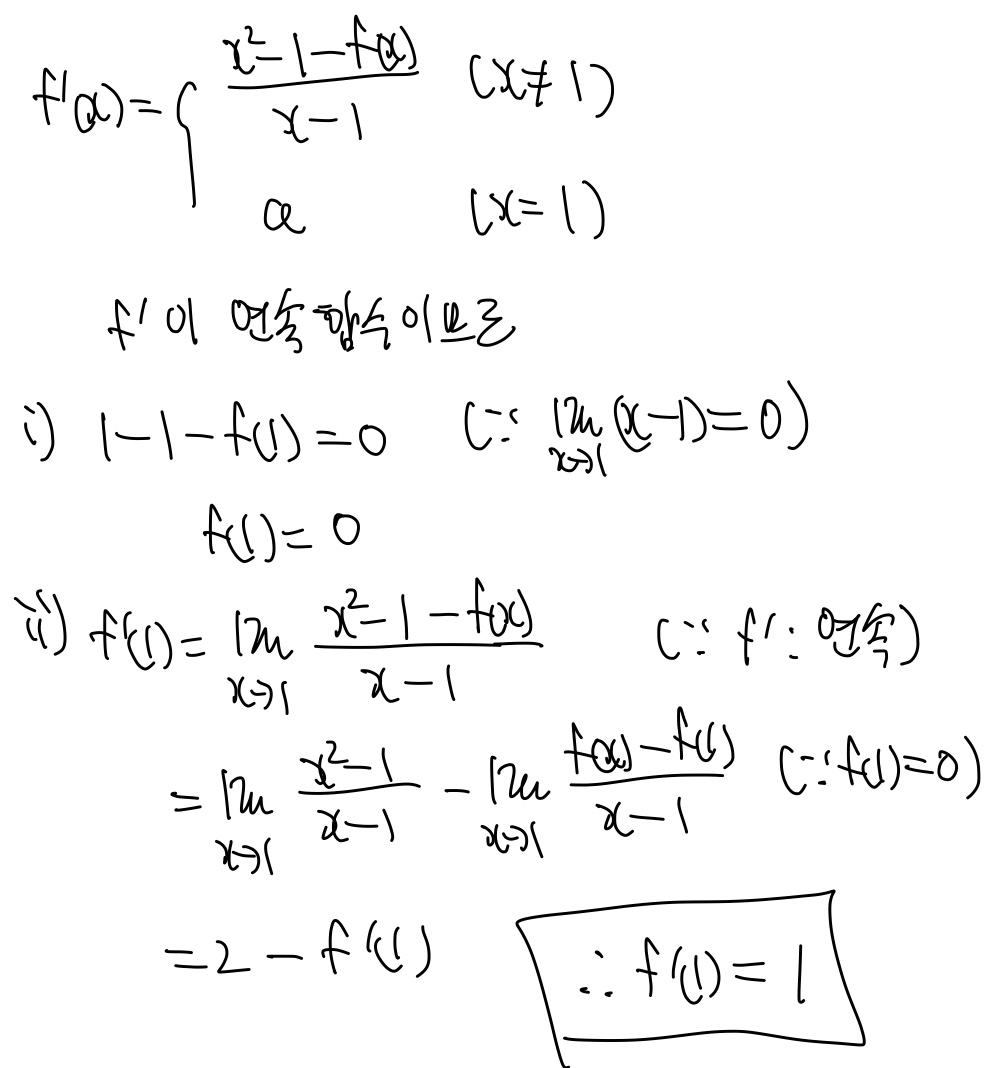 f'(x) = { (x²-1-f(x))/(x-1) (x≠1)
a (x=1)
f'이 연속함수이므로
i) 1-1-f(1)=0 (∵ lim_{x→1}(x-1)=0)
f(1)=0
ii) f'(1) = lim_{x→1} (x²-1-f(x))/(x-1) (∵ f' : 연속)
= lim_{x→1} (x²-1)/(x-1) - lim_{x→1} (f(x)-f(1))/(x-1) (∵ f(1)=0)
= 2 - f'(1)
∴ f'(1) = 1